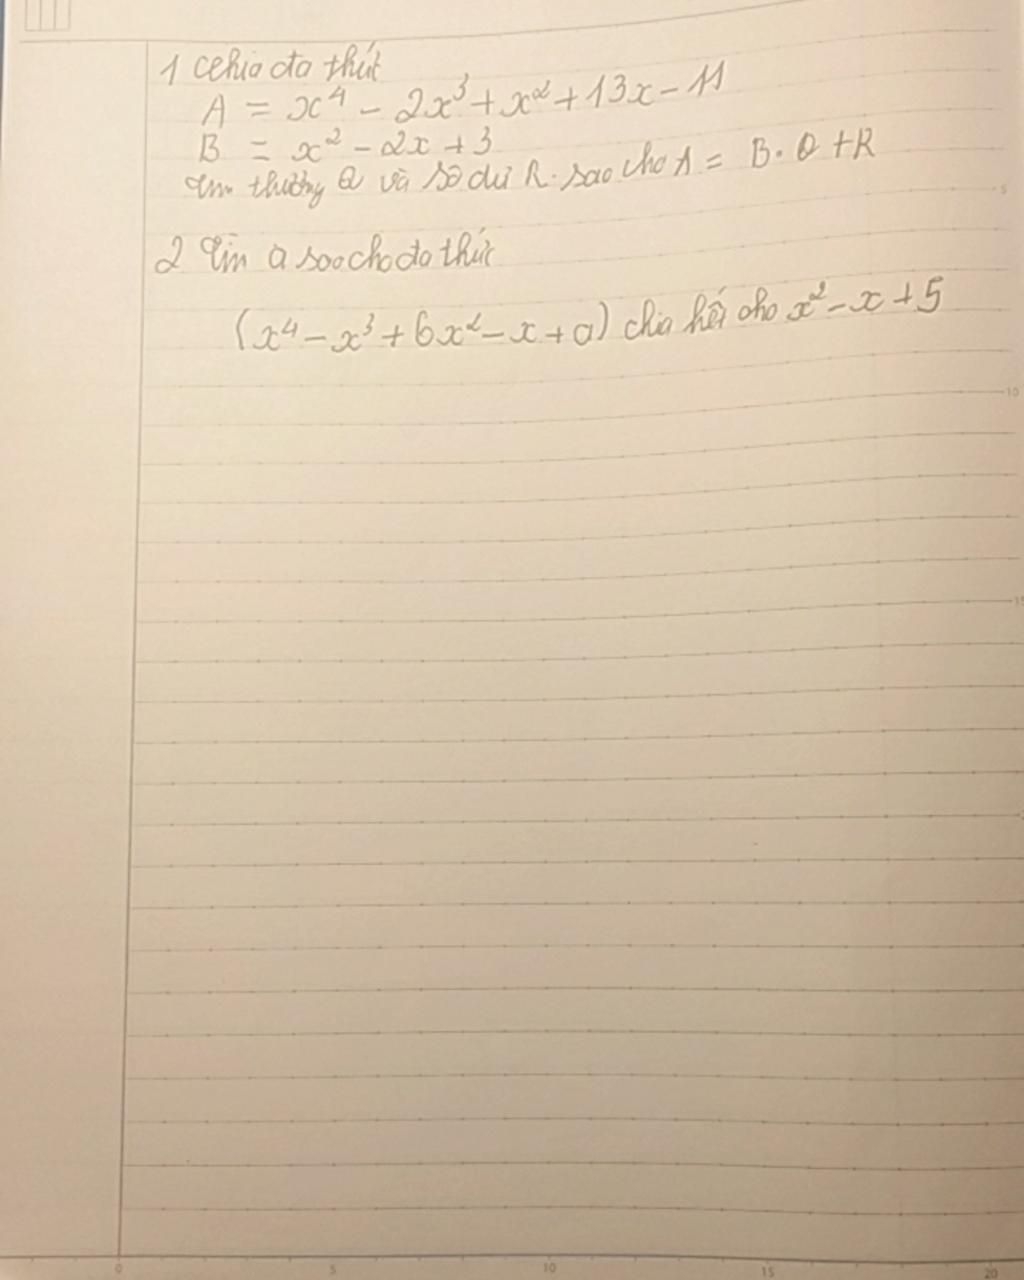 1 chia đa thức
A = x⁴ - 2x³ + x² + 13x - 11
B = x² - 2x + 3
Tìm thương Q và số dư R. sao cho A = B. Q + R
2 Tìm a sao cho đa thức
(x⁴ - x³ + 6x² - x + a) chia hết cho x² - x + 5
5
10
15
0 5 10 15 20